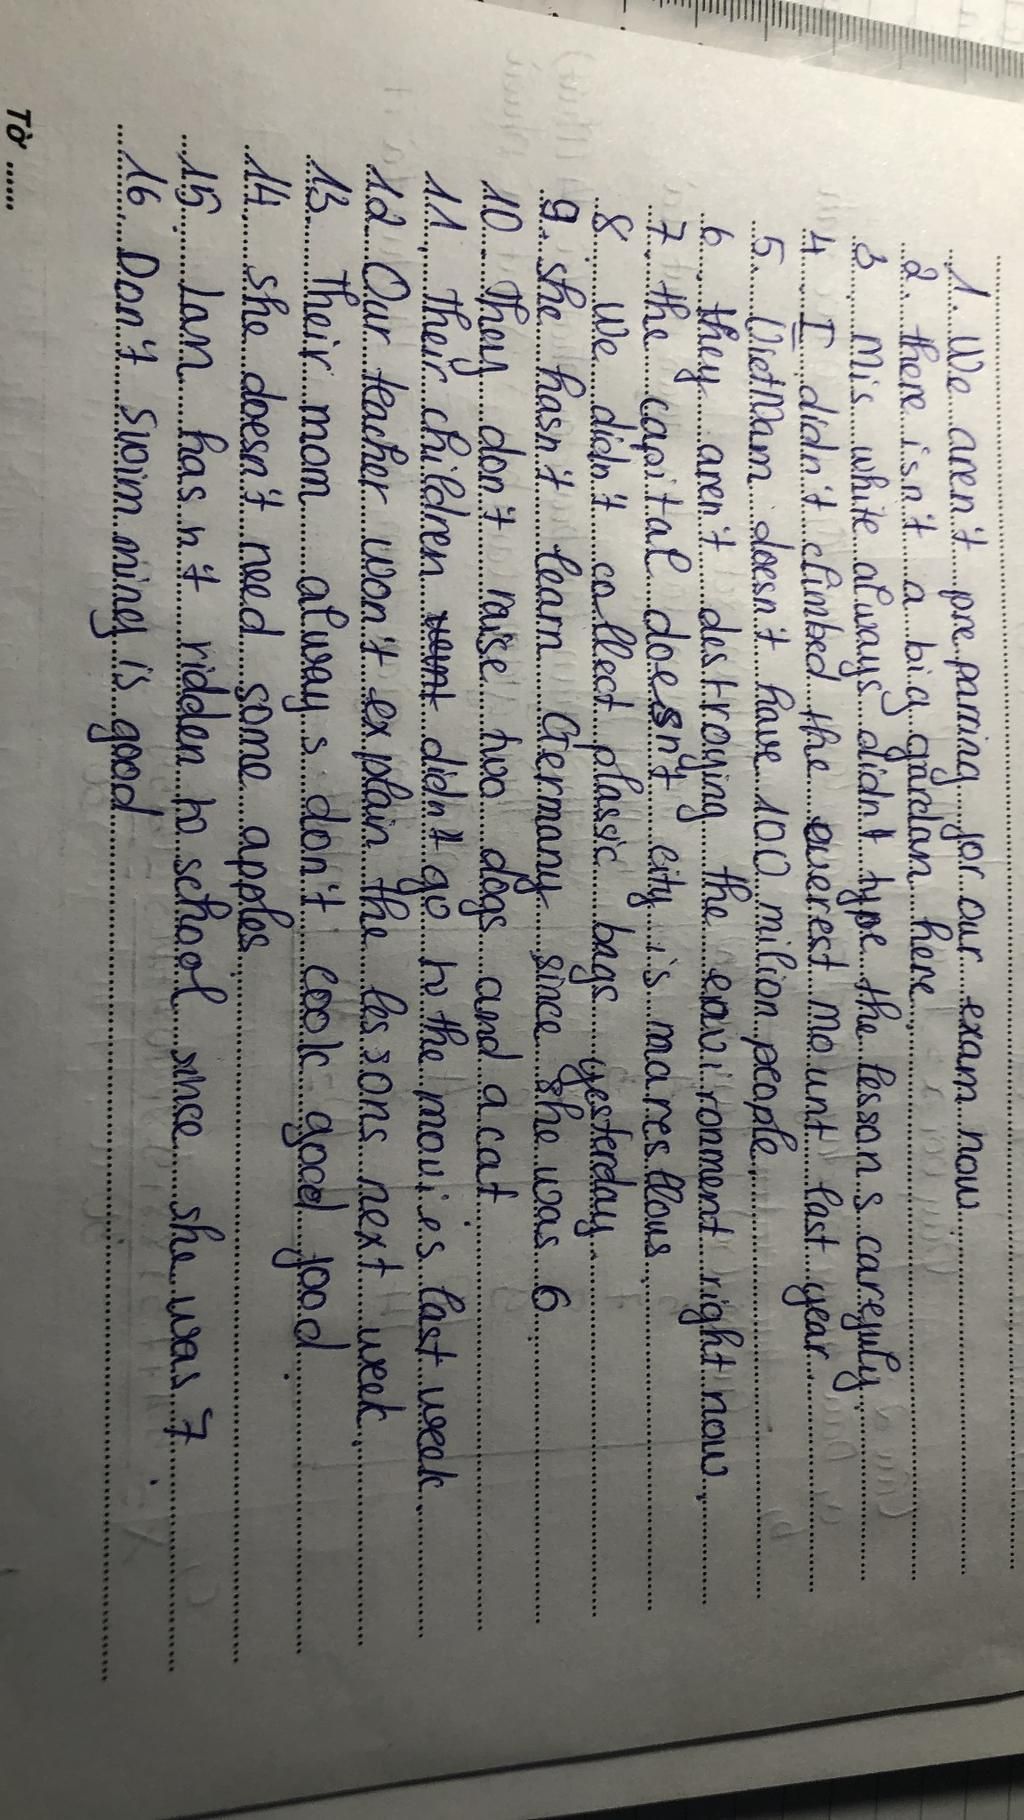 1. We aren't preparing for our exam now
2. there isn't a big gardan here.
3 Mis white always didn't type the lessons carefuly
4 I didn't climbed the everest mount last year
5. VietNam doesn't have 100 milion people.
6 they aren't destroying the environment right now.
7 the capital doesn't city is maresllous.
8 We didn't collect plassic bags yesterday.
9. she hasn't learn Germany since she was 6
10 They don't raise two dogs and a cat
11. Their children didn't go to the movies last week.
12 Our teacher won't explain the lessons next week.
13. Their mom always don't cook good food.
14 she doesn't need some apples
15. Lan hasn't ridden to school since she was 7
16 Don't swimming is good
Tờ ......